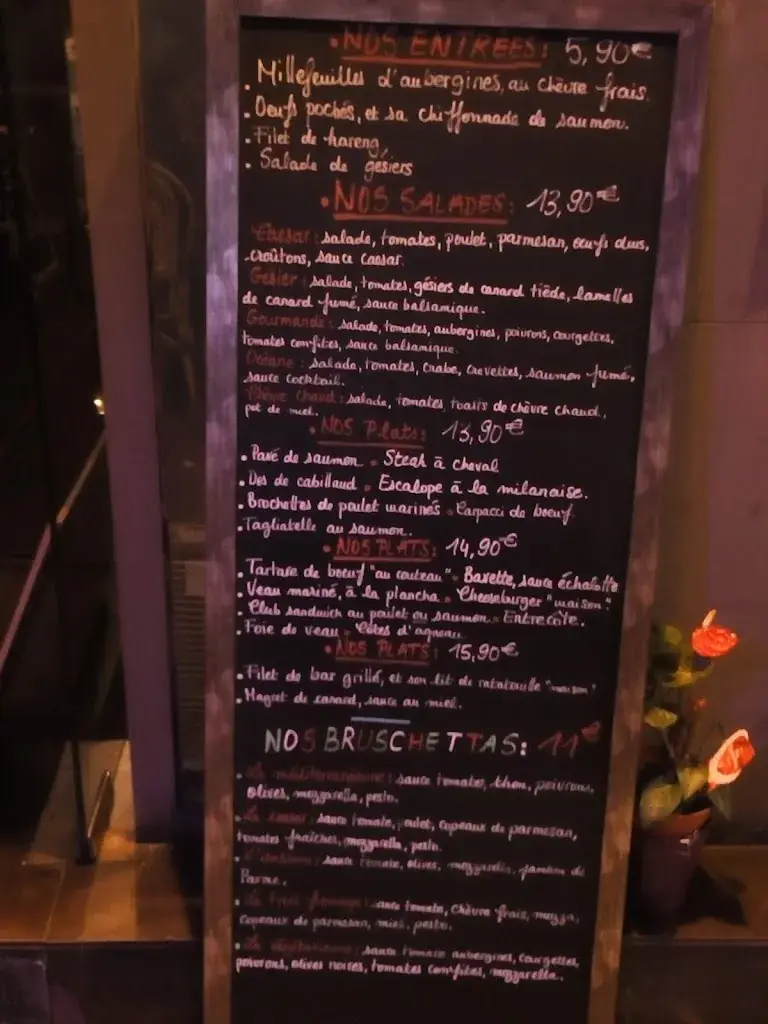 • NOS ENTREES: 5,90€
• Millefeuilles d'aubergines, au chèvre frais.
• Oeufs pochés, et sa chiffonnade de saumon.
• Filet de hareng
• Salade de gésiers
• NOS SALADES: 13,90€
Caesar: salade, tomates, poulet, parmesan, oeufs durs,
croûtons, sauce Caesar.
Gésier: salade, tomates, gésiers de canard tiède, lamelles
de canard fumé, sauce balsamique.
Gourmande: salade, tomates, aubergines, poivrons, courgettes,
tomates confites, sauce balsamique.
Océane: salade, tomates, crabe, crevettes, saumon fumé,
sauce cocktail.
Chèvre Chaud: salade, tomates, toasts de chèvre chaud,
pot de miel.
• NOS Plats: 13,90€
• Pavé de saumon • Steak à cheval
• Dos de cabillaud • Escalope à la milanaise.
• Brochettes de poulet marinés • Carpacci de boeuf
• Tagliatelle au saumon.
• NOS PLATS: 14,90€
• Tartare de boeuf "au couteau" • Bavette, sauce échalotte
• Veau mariné, à la plancha • Cheeseburger "maison"
• Club sandwich au poulet ou saumon • Entrecôte.
• Foie de veau • Côtes d'agneau
• NOS PLATS: 15,90€
• Filet de bar grillé, et son lit de ratatouille "maison"
• Magret de canard, sauce au miel.
NOS BRUSCHETTAS: 11€
• La méditerranéenne: sauce tomates, thon, poivrons,
olives, mozzarella, pesto.
• La sauce tomate, poulet, copeaux de parmesan,
tomates fraîches, mozzarella, pesto.
• sauce tomate, olives, mozzarella, jambon de
Parme.
• La sauce tomate, chèvre frais, mozza,
copeaux de parmesan, miel, pesto.
• La végétarienne: sauce tomate aubergines, courgettes,
poivrons, olives noires, tomates confites, mozzarella.